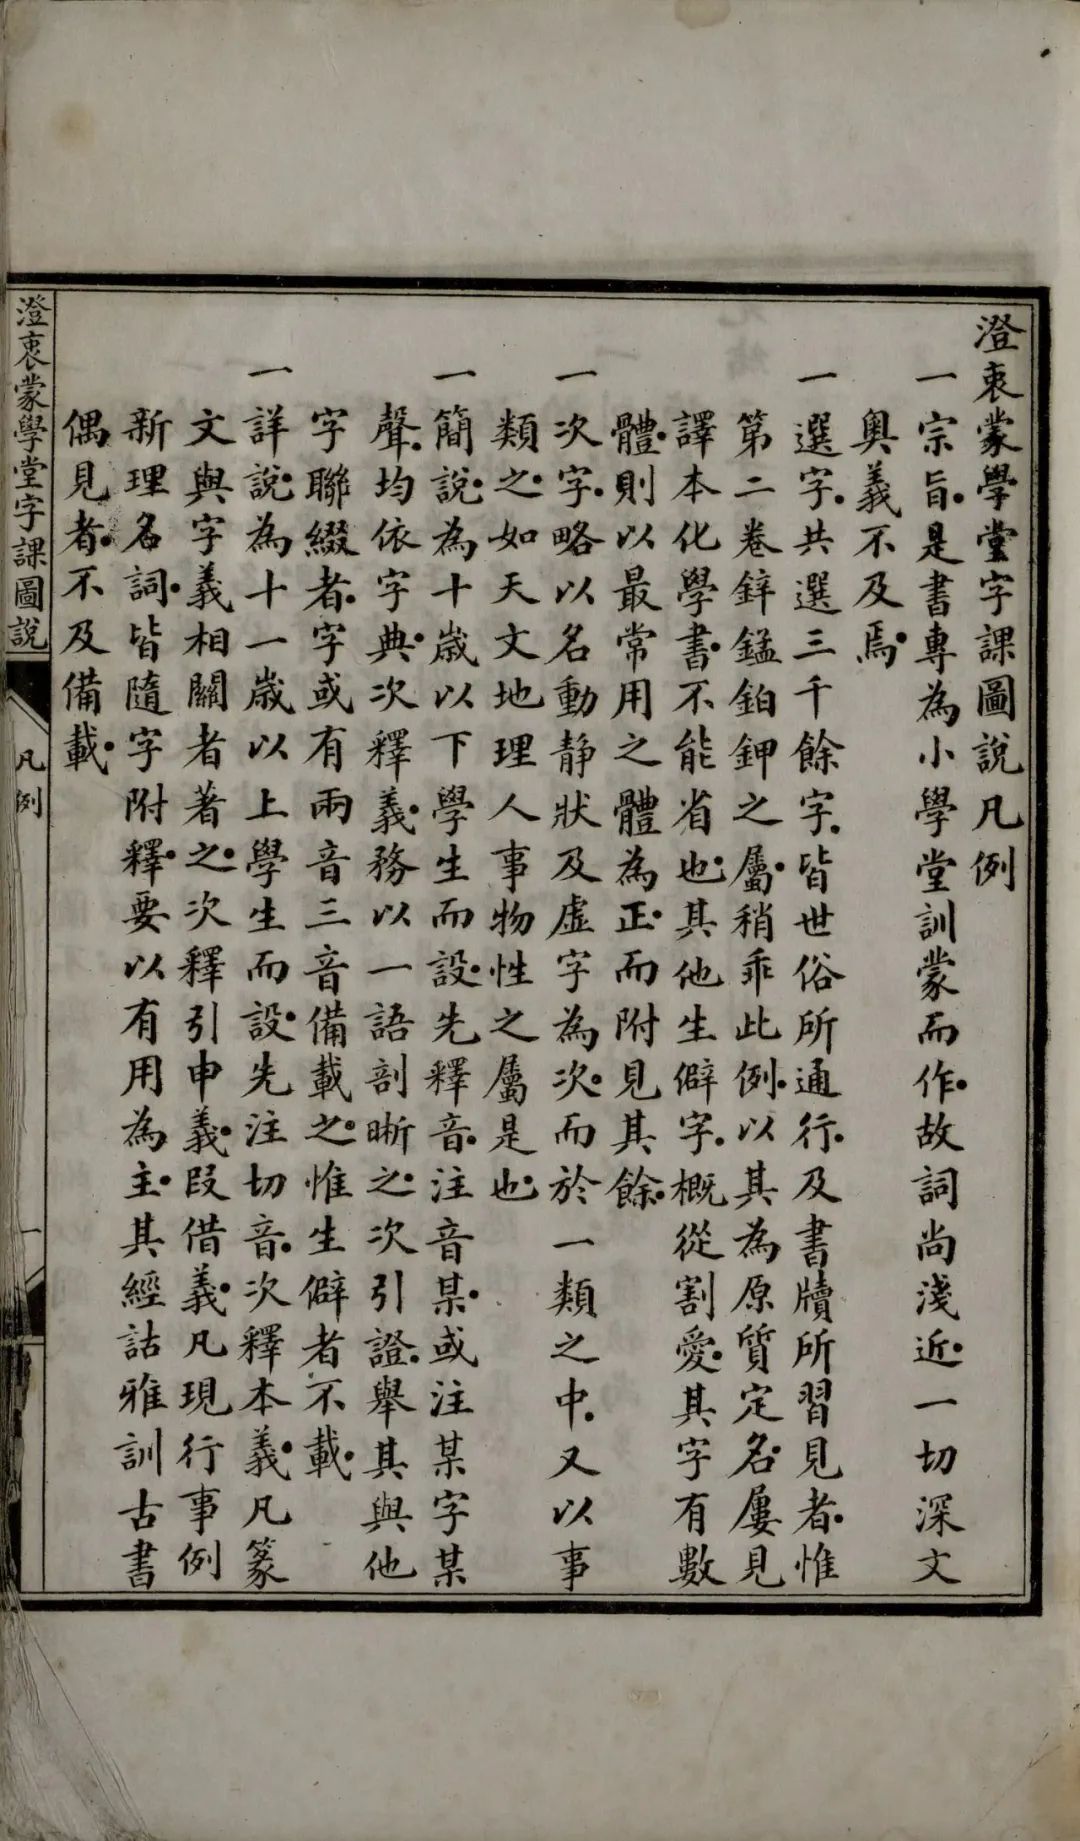 澄衷蒙學堂字課圖說凡例
一宗旨。是書專為小學堂訓蒙而作。故詞尚淺近。一切深文
奥義不及焉。
一選字。共選三千餘字。皆世俗所通行。及書牘所習見者。惟
第二卷鋅錳鉑鉀之屬。稍乖此例。以其為原質定名。屢見
譯本化學書。不能省也。其他生僻字。概從割愛。其字有數
體。則以最常用之體為正。而附見其餘。
一次字。略以名動静狀及虛字為次。而於一類之中。又以事
類之。如天文地理人事物性之屬是也。
一簡說。為十歲以下學生而設。先釋音。注音某。或注某字某
聲。均依字典。次釋義。務以一語剖晰之。次引證。舉其與他
字聯綴者。字或有兩音三音備載之。惟生僻者不載。
一詳說。為十一歲以上學生而設。先注切音。次釋本義。凡篆
文與字義相關者著之。次釋引申義。叚借義。凡現行事例
新理名詞。皆隨字附釋。要以有用為主。其經詁雅訓古書
偶見者。不及備載。
澄衷蒙學堂字課圖說
凡例
一